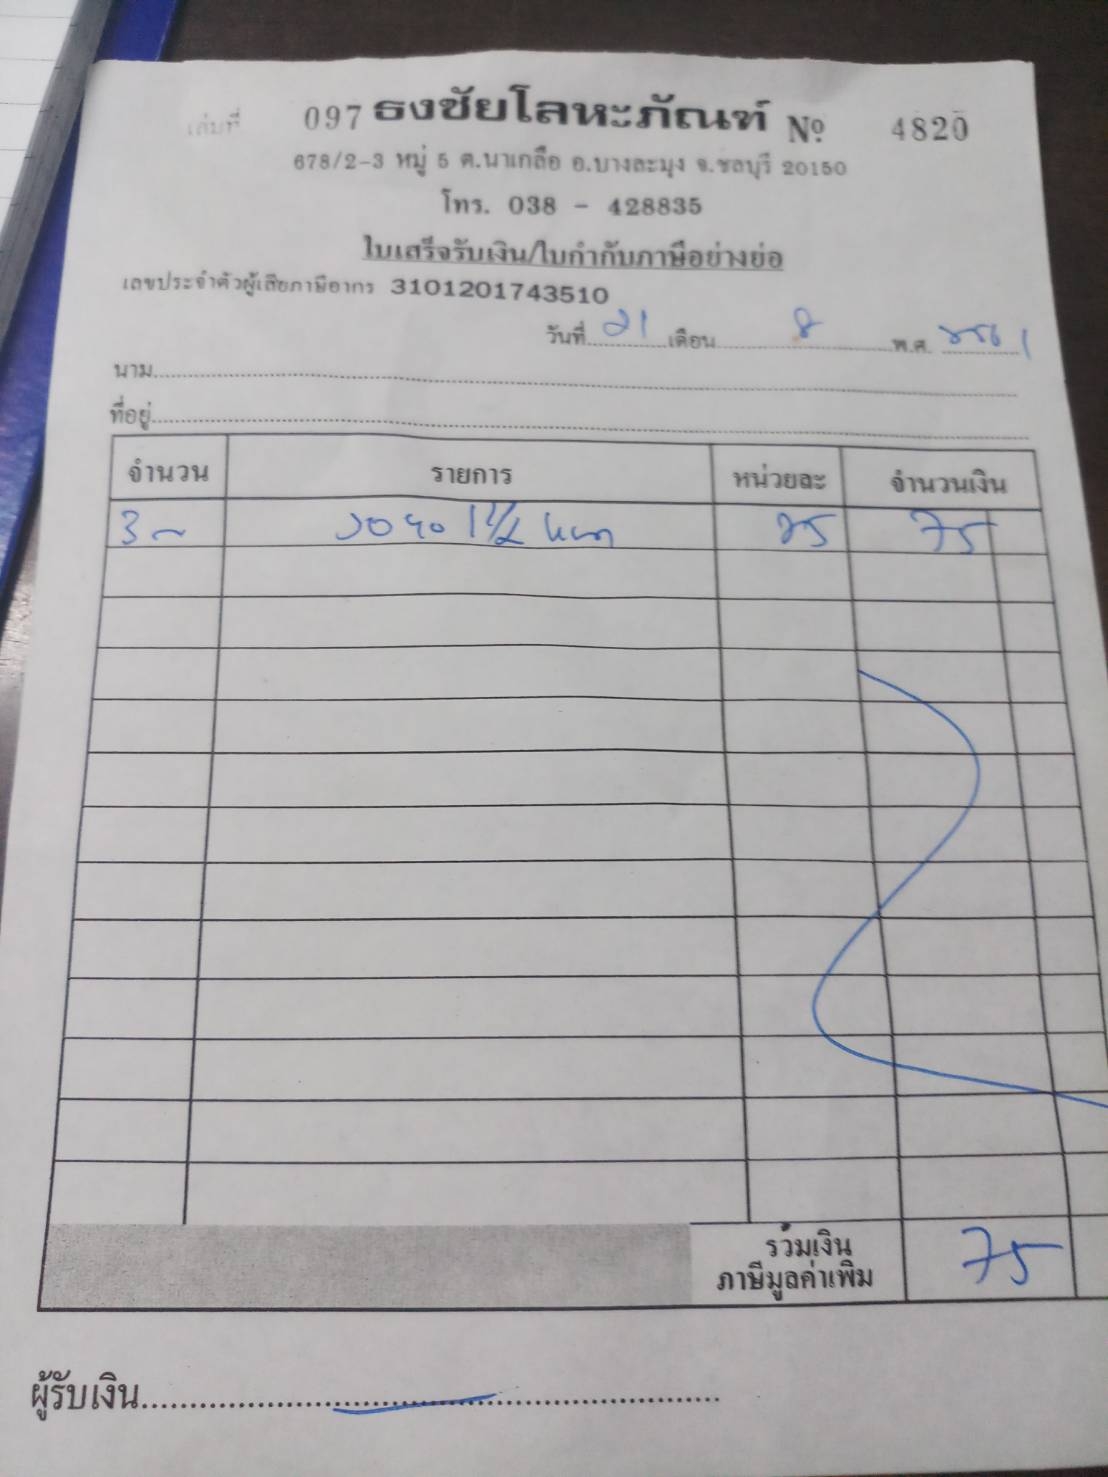 เล่มที่ 097 ธงชัยโลหะภัณฑ์ Nº 4820
678/2-3 หมู่ 5 ต.นาเกลือ อ.บางละมุง จ.ชลบุรี 20150
โทร. 038 - 428835
ใบเสร็จรับเงิน/ใบกำกับภาษีอย่างย่อ
เลขประจำตัวผู้เสียภาษีอากร 3101201743510
วันที่ 21 เดือน 8 พ.ศ. 2561
นาม
ที่อยู่
จำนวน รายการ หน่วยละ จำนวนเงิน
3 1 1/2 25 75
รวมเงิน
ภาษีมูลค่าเพิ่ม 75
ผู้รับเงิน